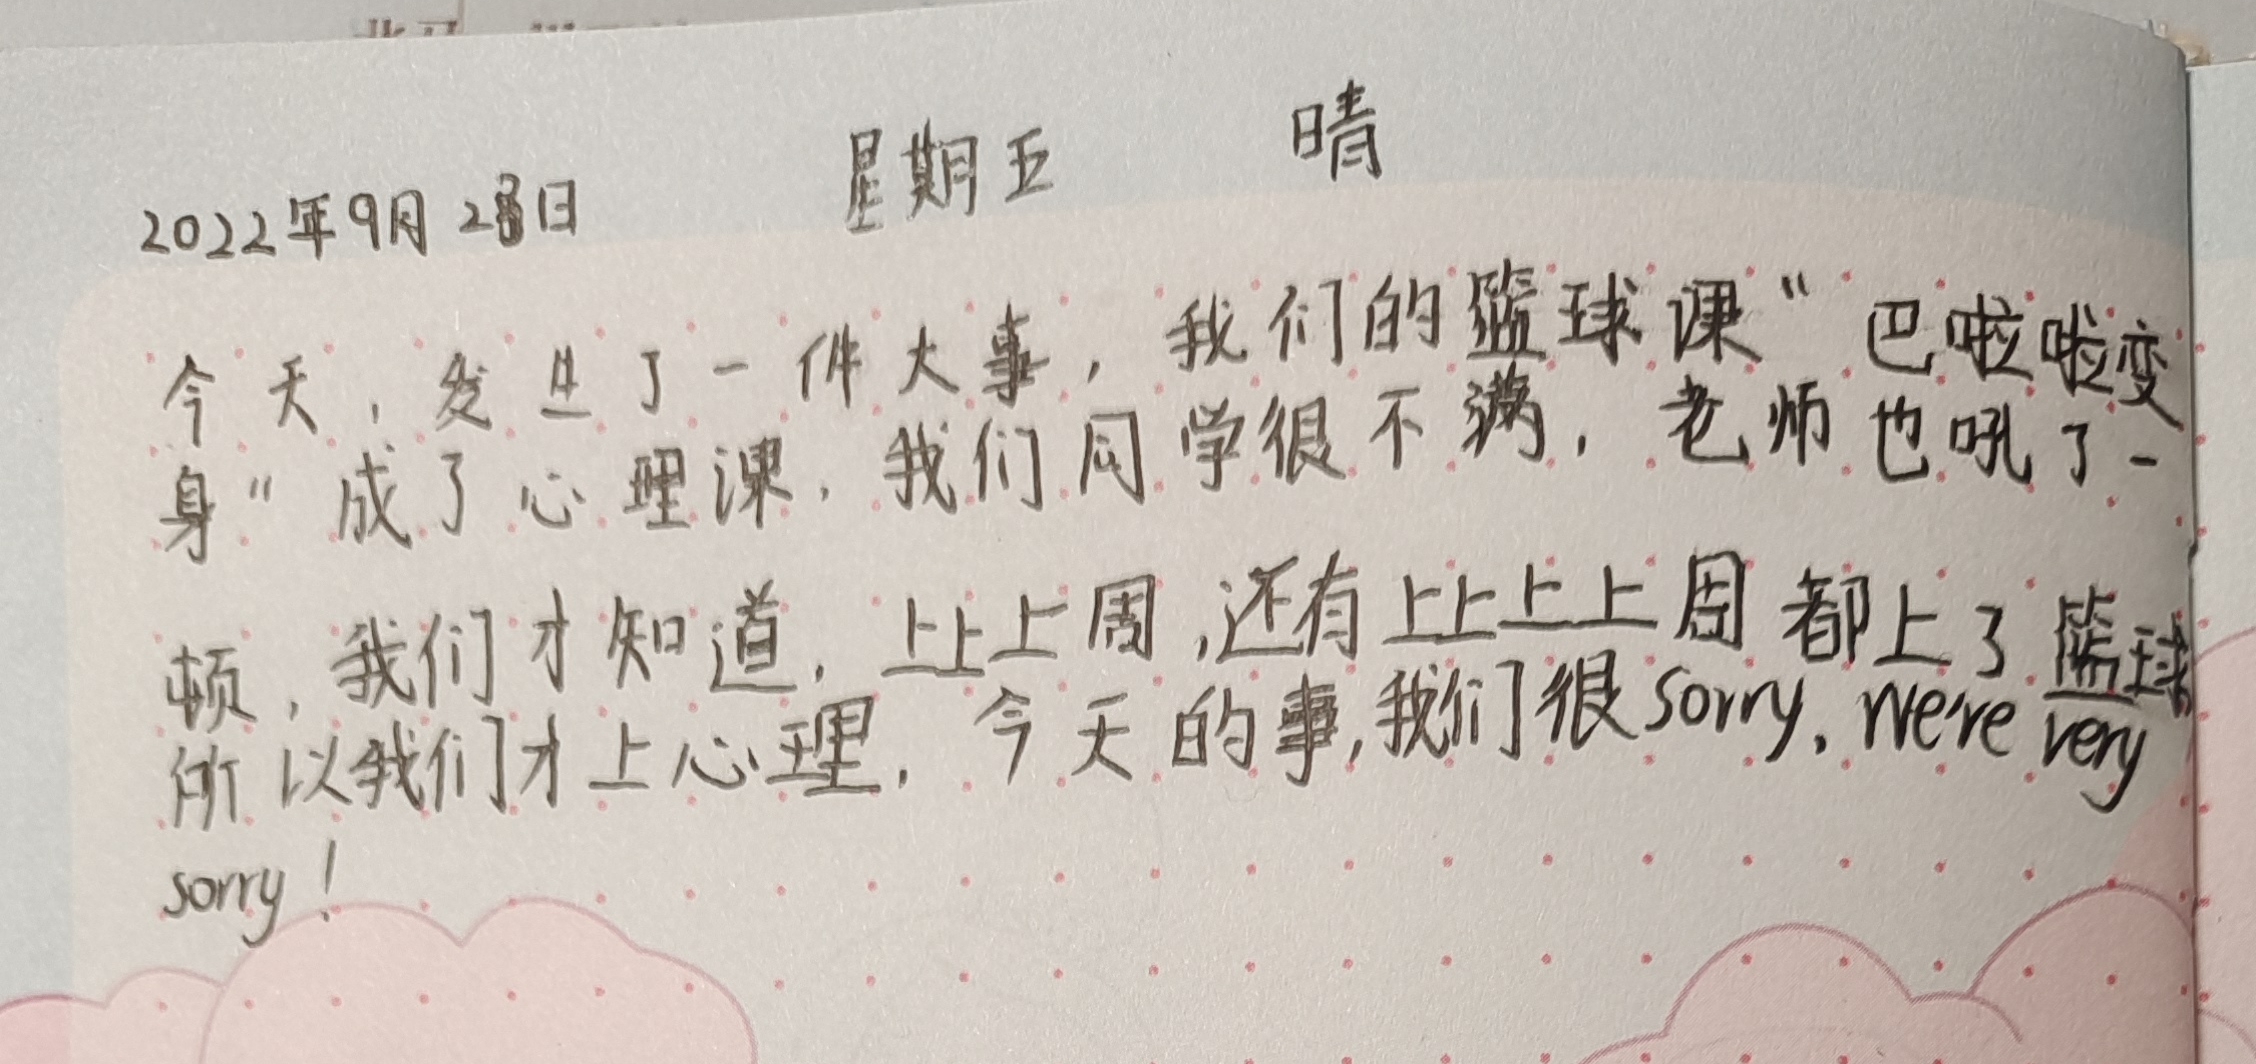 2022年9月23日 星期五 晴
今天，发生了一件大事，我们的篮球课“巴啦啦变
身”成了心理课，我们同学很不满，老师也吼了一
顿，我们才知道，上上上周，还有上上上上周都上了篮球
所以我们才上心理，今天的事，我们很sorry，we're very
sorry！